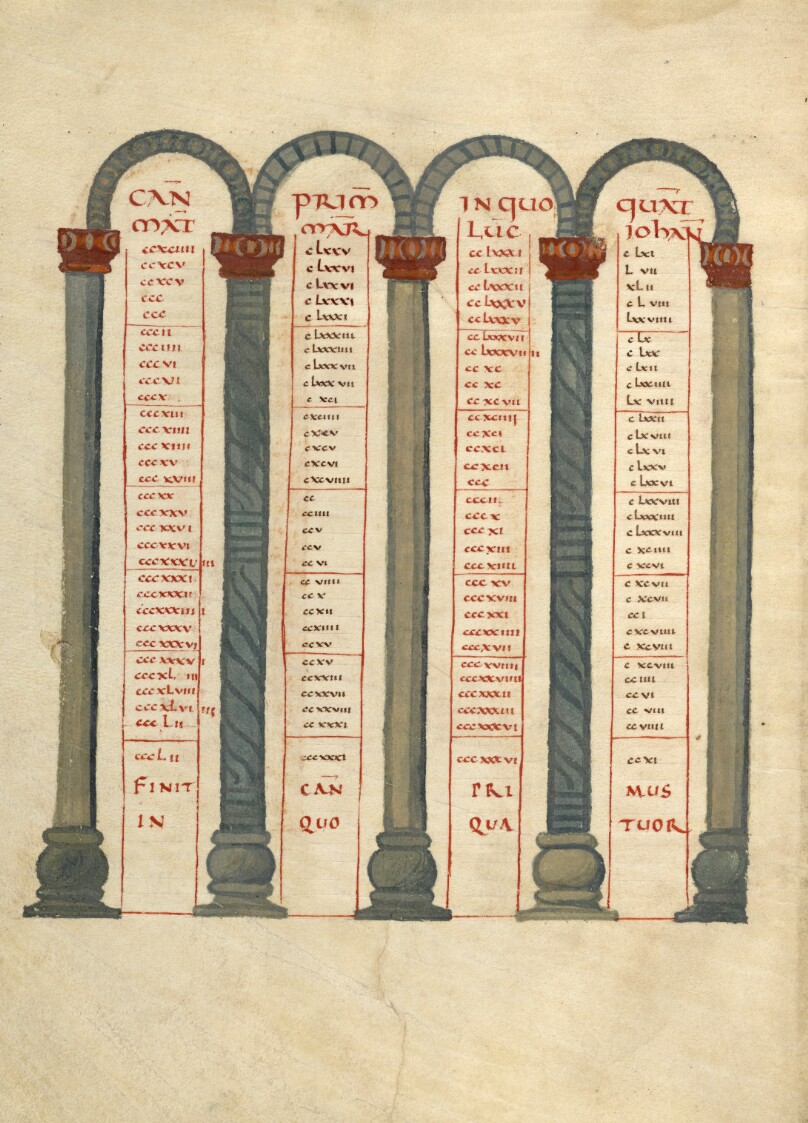 CAN̄ PRIM̄ IN QUO QUĀT
MĀT MAR̄ LUC̄ IOHAN̄
ccxciiii clxxv cclxxxi clxi
ccxcv clxxvi cclxxxii Lvii
ccxcv clxxvi cclxxxii xLii
ccc clxxxi cclxxxv cLviii
ccc clxxxi cclxxxv lxxviiii
cccii clxxxiii cclxxxvii clx
ccciiii clxxxiiii cclxxxviiii clxx
cccvi clxxxvii ccxc clxii
cccxii clxxxvii ccxc clxxiiii
cccx cxci ccxcvii lxviiii
cccxiii cxciiii ccxciiii clxxii
cccxiiii cxcv ccxci clxviii
cccxiiii cxcv ccxci clxvi
cccxv cxcvi ccxcii clxxv
cccxviii cxcviiii ccc clxxvi
cccxx cc cccii clxxviii
cccxxv cciiii cccx clxxxiiii
cccxxvi ccv cccxi clxxxviii
cccxxvi ccv cccxiii cxciiii
cccxxxviii ccvi cccxiiii cxcvi
cccxxxi ccviiii cccxv cxcvii
cccxxxii ccx cccxviii cxcvii
cccxxxiiii ccxii cccxxi cci
cccxxxv ccxiiii cccxxiiii cxcviiii
cccxxxvi ccxv cccxvii cxcviii
cccxxxvi ccxv cccxviiii cxcviii
cccxLiii ccxxiii cccxxviiii cciiii
cccxLviii ccxxvii cccxxxii ccvi
cccxLviiii ccxxviii cccxxxiii ccviii
cccLii ccxxxi cccxxxvi ccviiii
cccLii ccxxxi cccxxxvi ccxi
FINIT CAN̄ PRI MUS
IN QUO QUA TUOR